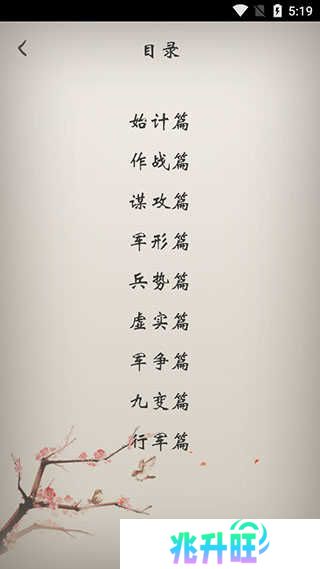 5:19
目录
始计篇
作战篇
谋攻篇
军形篇
兵势篇
虚实篇
军争篇
九变篇
行军篇
兆升旺